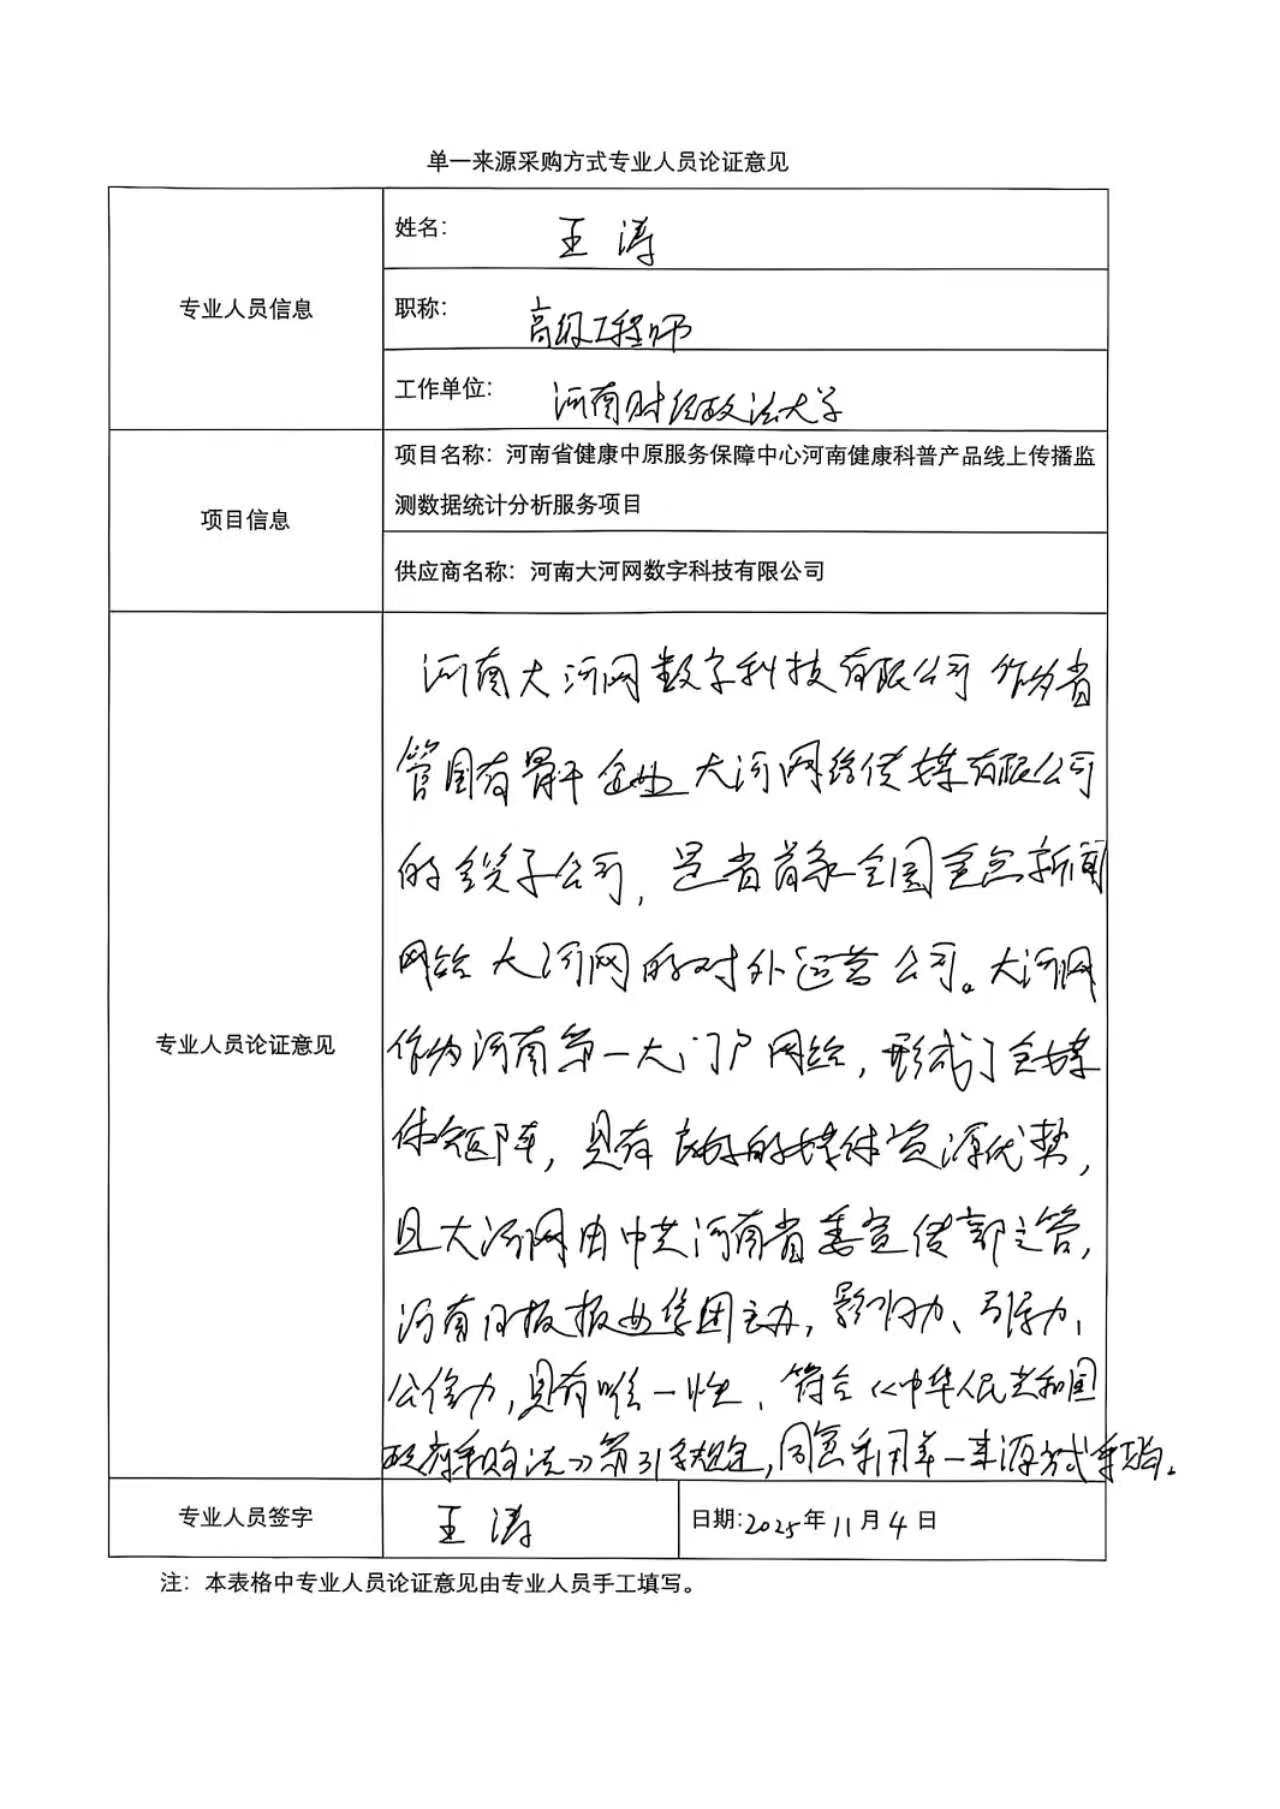 单一来源采购方式专业人员论证意见
专业人员信息
姓名: 王涛
职称: 高级工程师
工作单位: 河南财经政法大学
项目信息
项目名称: 河南省健康中原服务保障中心河南健康科普产品线上传播监
测数据统计分析服务项目
供应商名称: 河南大河网数字科技有限公司
专业人员论证意见
河南大河网数字科技有限公司作为省
管国有骨干企业大河网络传媒有限公司
的全资子公司, 是省首家全国重点新闻
网站大河网的对外运营公司。大河网
作为河南第一大门户网站, 形成了全媒
体矩阵, 具有良好的媒体资源优势,
且大河网由中共河南省委宣传部主管,
河南日报报业集团主办, 影响力、引导力、
公信力, 具有唯一性、符合《中华人民共和国
政府采购法》第31条规定, 同意采用单一来源方式采购。
专业人员签字
王涛
日期: 2025年11月4日
注: 本表格中专业人员论证意见由专业人员手工填写。